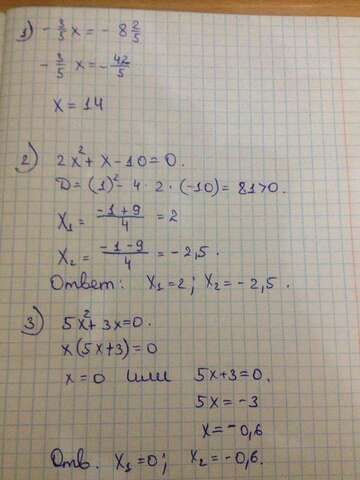 1) - 3/5 x = - 8 2/5
- 3/5 x = - 42/5
x = 14
2) 2x² + x - 10 = 0.
D = (1)² - 4 · 2 · (-10) = 81 > 0.
X₁ = (-1 + 9)/4 = 2
X₂ = (-1 - 9)/4 = -2,5.
Ответ: X₁ = 2; X₂ = -2,5.
3) 5x² + 3x = 0.
x(5x + 3) = 0
x = 0 или 5x + 3 = 0.
5x = -3
x = -0,6
Отв. X₁ = 0; X₂ = -0,6.